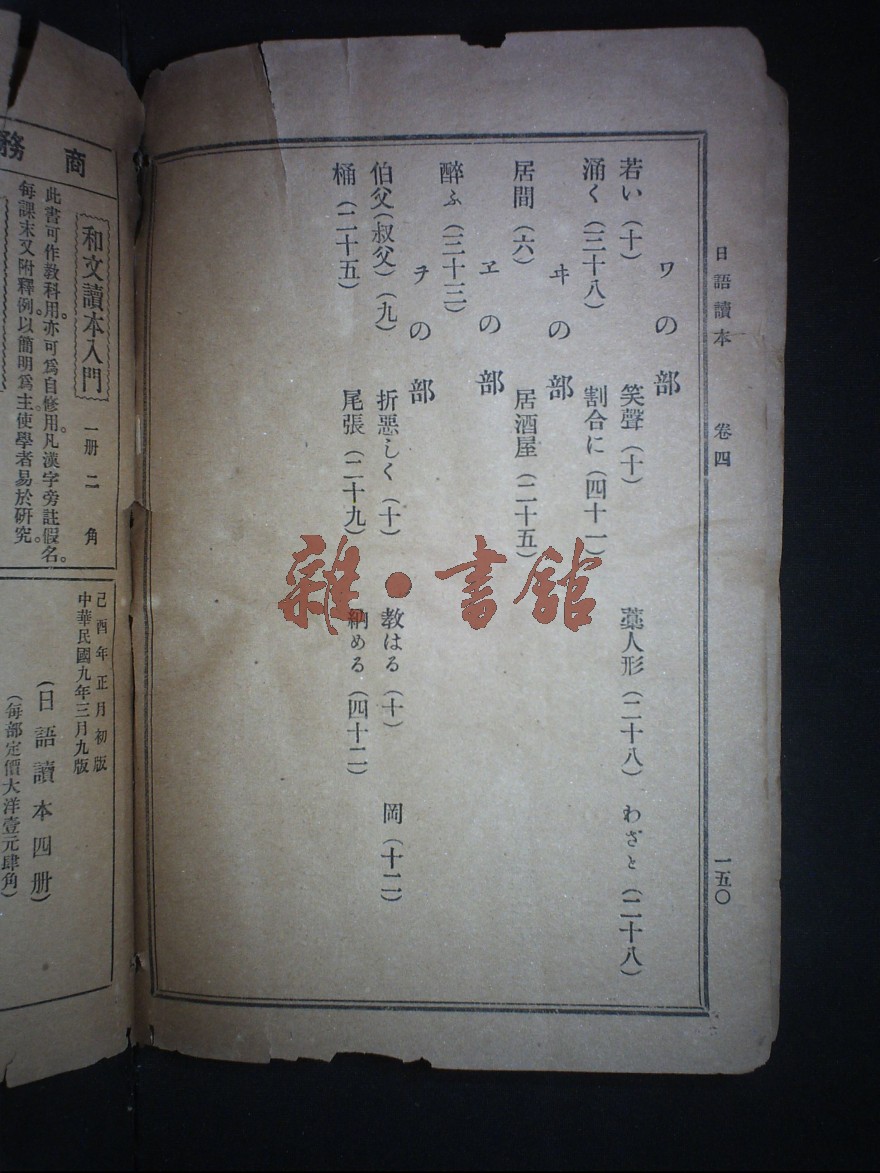 日語讀本 卷四 一五〇
ワの部
若い（十） 笑聲（十） 藁人形（二十八） わざと（二十八）
涌く（三十八） 割合に（四十一）
ヰの部
居間（六） 居酒屋（二十五）
ヱの部
醉ふ（三十三）
ヲの部
伯父（叔父）（九） 折惡しく（十） 教はる（十） 岡（十二）
桶（二十五） 尾張（二十九） 納める（四十二）
雜·書館
商務
和文讀本入門 一册 二角
此書可作教科用。亦可爲自修用。凡漢字旁註假名。
每課末又附釋例。以簡明爲主。使學者易於研究。
己酉年正月初版
中華民國九年三月九版
（日語讀本四册）
（每部定價大洋壹元肆角）